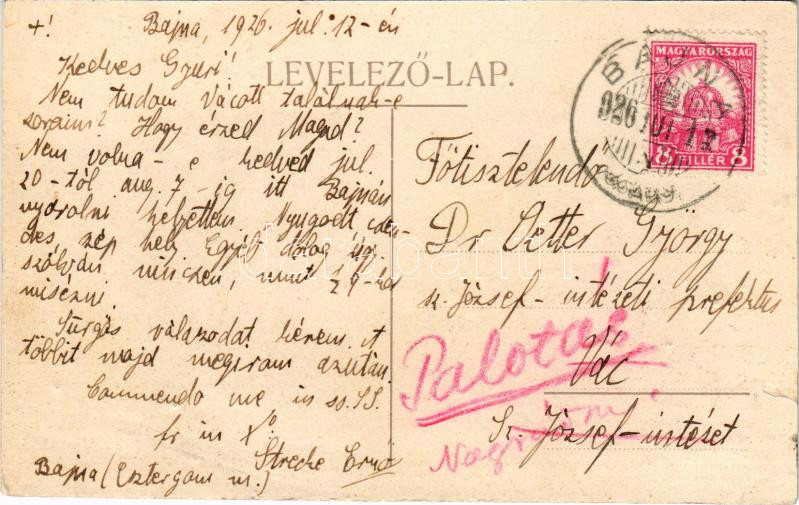 +! Bajna, 1926. jul. 12-én
Kedves Gyuri!
Nem tudom Vácott találnak-e
soraim? Hogy érzed Magad?
Nem volna-e kedved jul.
20-tól aug. 7-ig itt Bajnán
nyaralni helyettem Nyugodt csen-
des, szép hely Egyéb dolog úgy
szólván nincsen, mint 1/2 7-kor
misézni.
Sürgős válaszodat kérem. A
többit majd megirom azután.
Commendo me in ss. SS.
fr in Xo
Strecke Ernő
Bajna (Esztergom m.)
LEVELEZŐ-LAP.
MAGYARORSZÁG
8 FILLÉR 8
BAJNA
926 JUL 12
Főtisztelendő
Dr. Oetter György
sz. József-intézeti prefektus
Palotás
Vác
Sz. József-intézet
darabanth